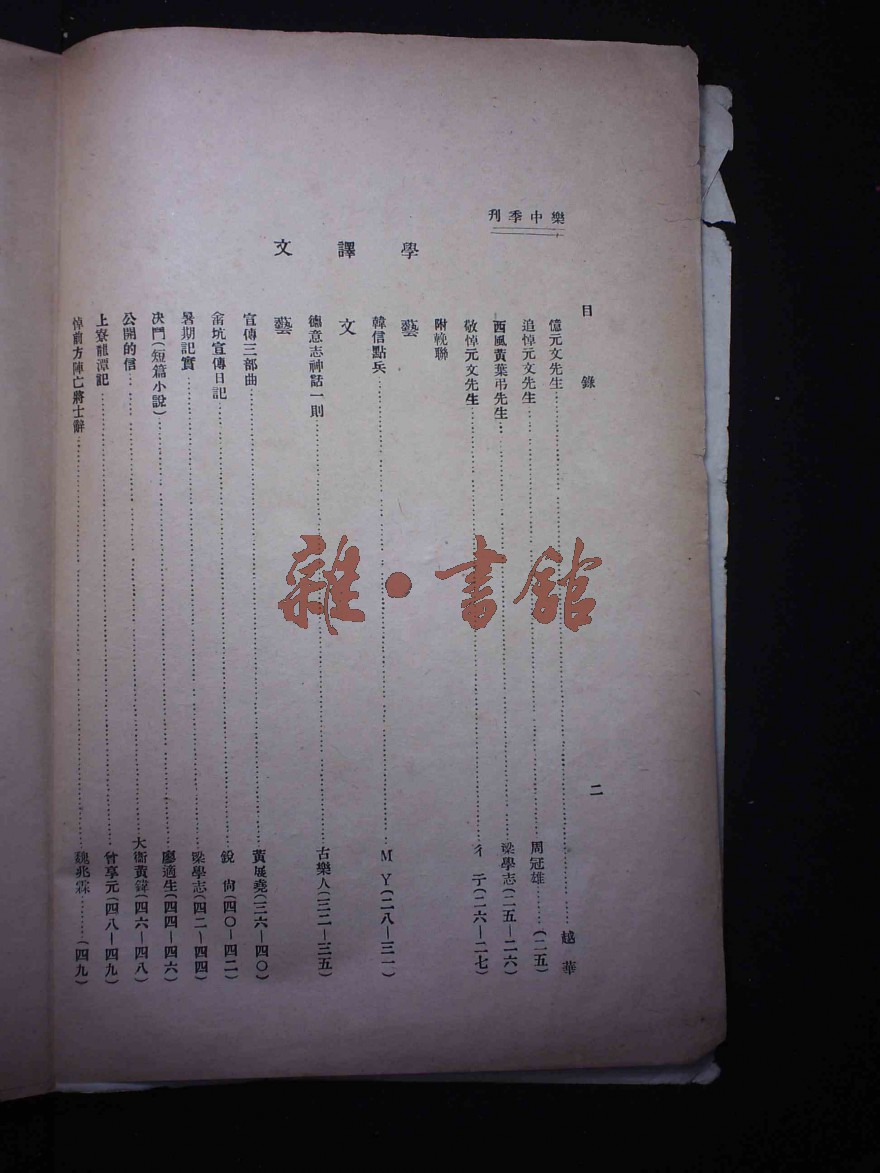 樂中季刊
目錄
二
憶元文先生……越華
追悼元文先生……周冠雄……(二五)
西風黃葉弔先生……梁學志(二五—二六)
敬悼元文先生……彳亍(二六—二七)
附輓聯
學藝
韓信點兵……M Y(二八—三一)
譯文
德意志神話一則……古樂人(三二—三五)
文藝
宣傳三部曲……黃展堯(三六—四〇)
畲坑宣傳日記……銳尙(四〇—四二)
暑期記實……梁學志(四二—四四)
決鬥(短篇小說)……廖適生(四四—四六)
公開的信……大衞黃鍏(四六—四八)
上寮龍潭記……曾享元(四八—四九)
悼前方陣亡將士辭……魏兆霖……(四九)
雜·書館